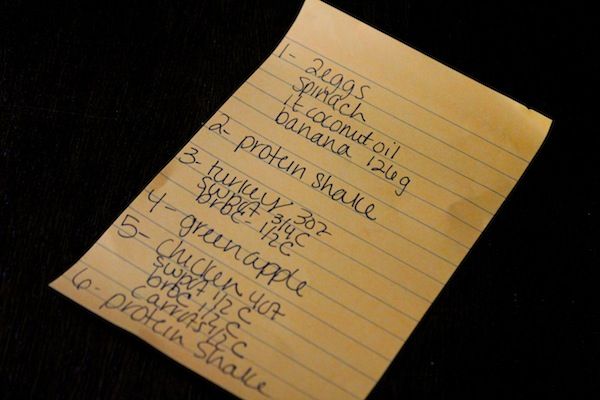 1- 2eggs
spinach
1t coconut oil
banana 126g
2- protein shake
3- turkey 3oz
swpot 3/4c
broc- 1/2c
4- green apple
5- chicken 4oz
swpot 1/2 c
broc 1/2 c
carrots 1/2c
6- protein shake